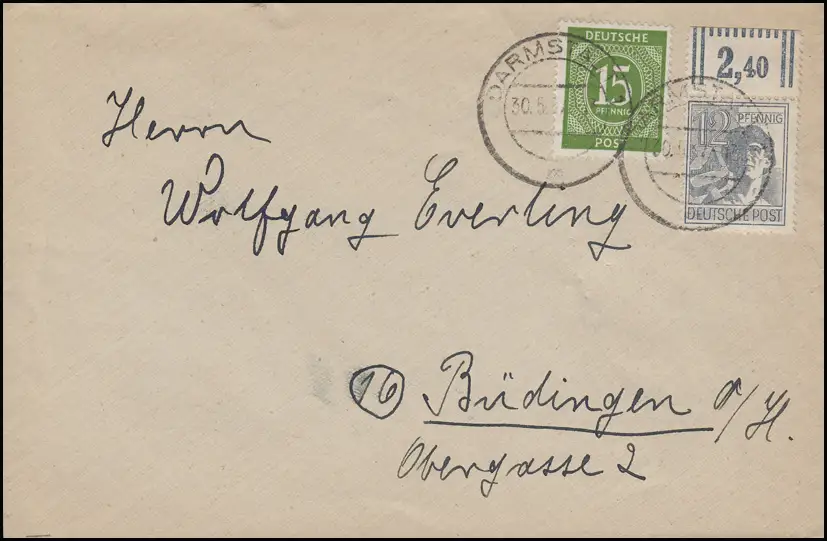 DEUTSCHE
15
PFENNIG
POST
2,40
12 PFENNIG
DEUTSCHE POST
DARMSTA
30.5.
Herrn
Wolfgang Everling
16 Büdingen O/H.
Obergasse 2